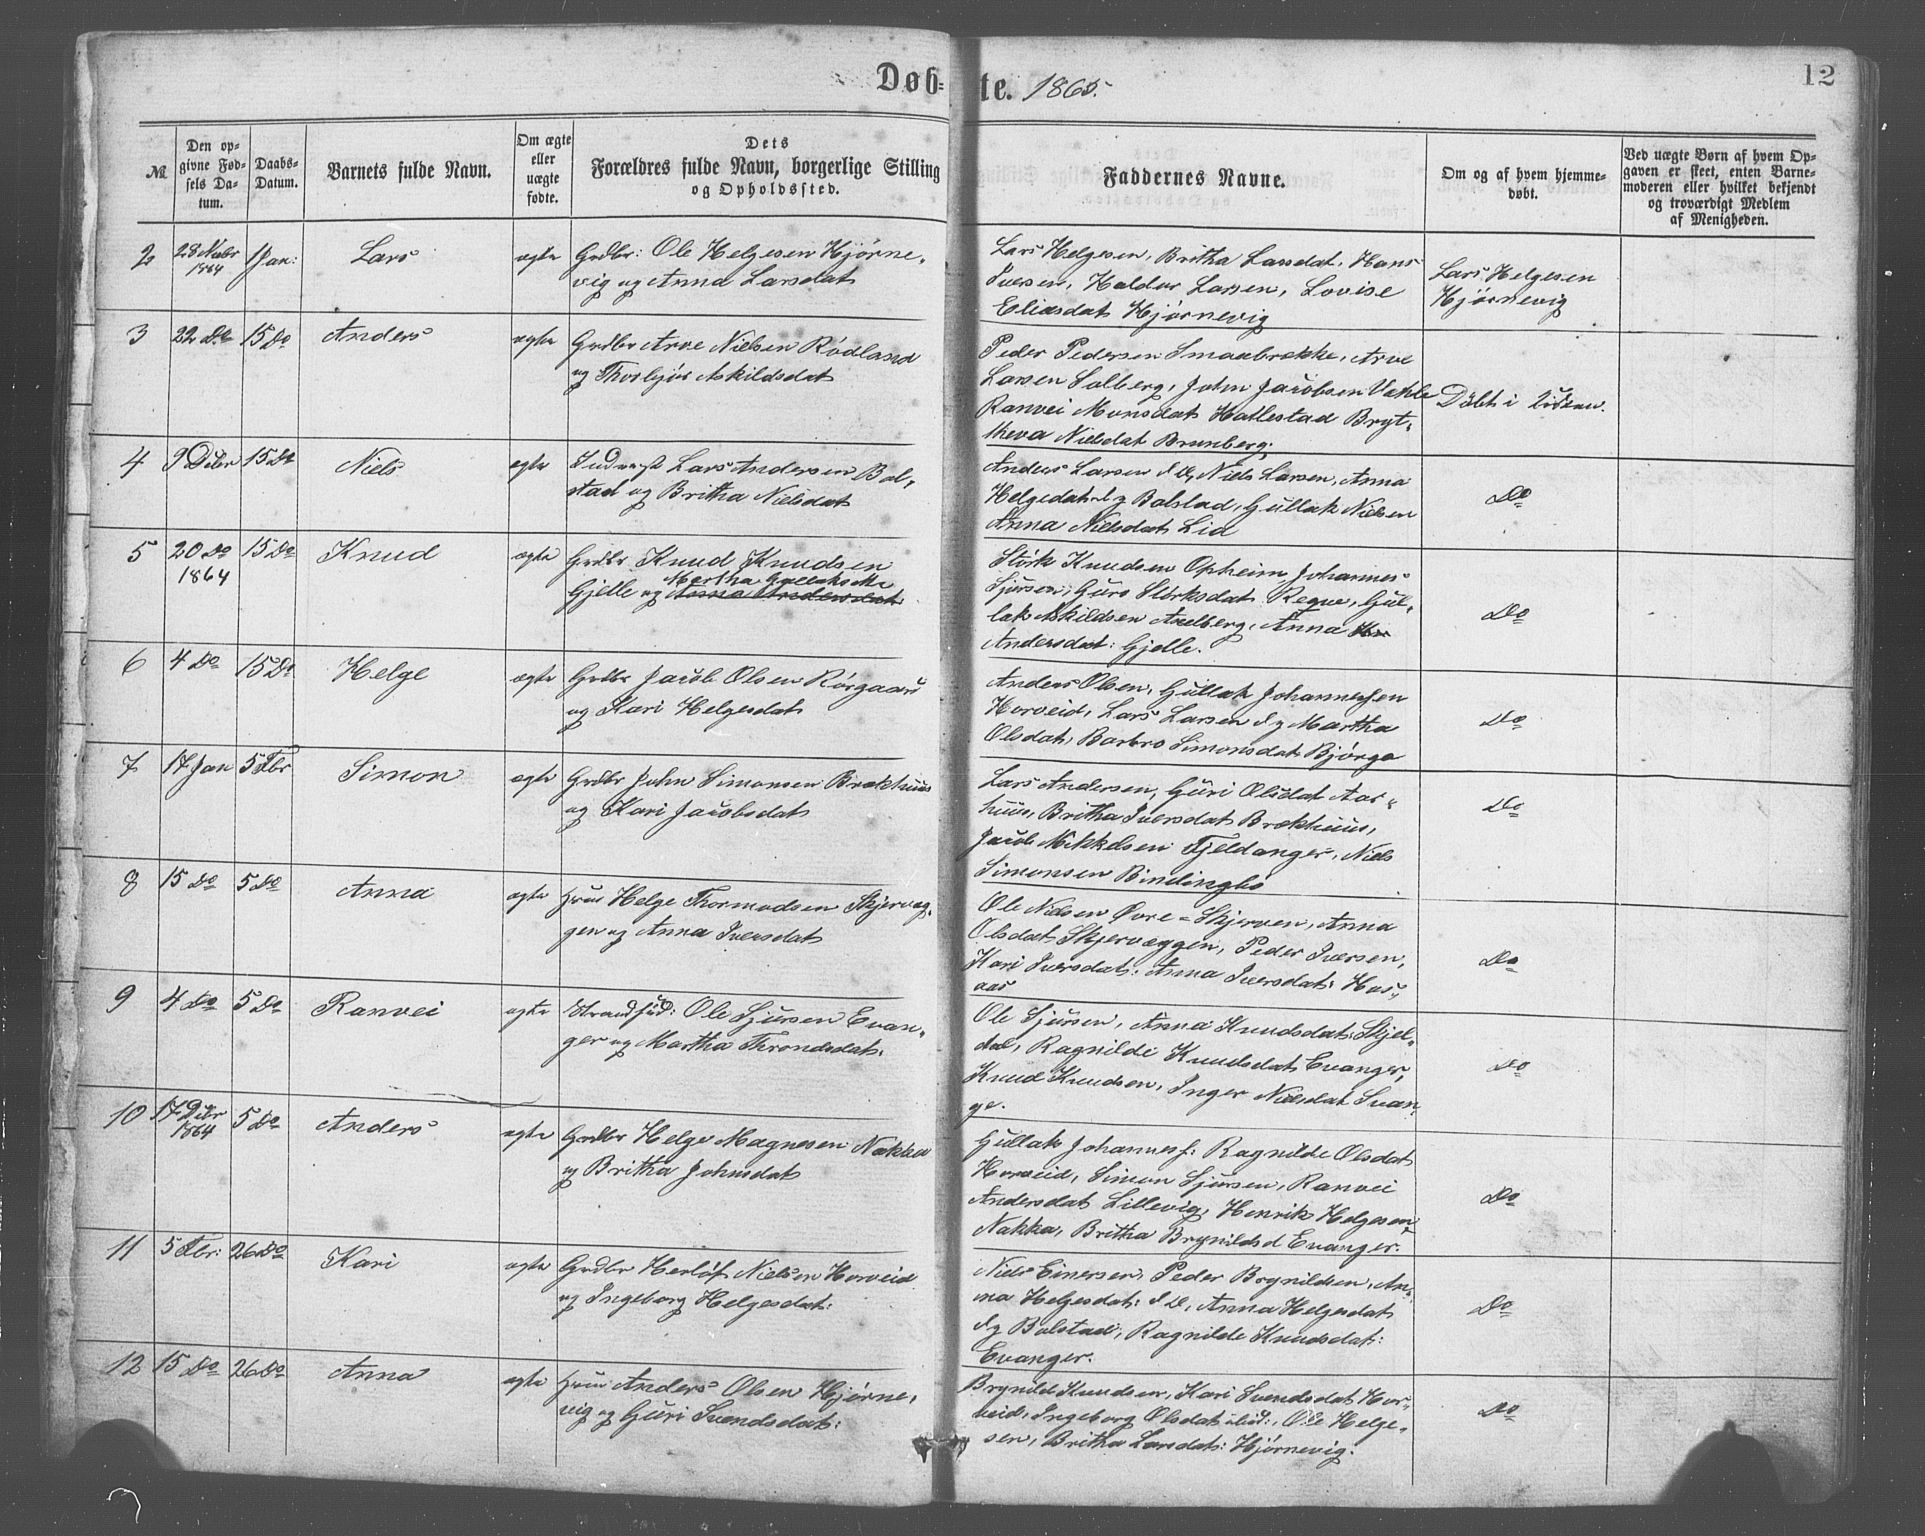 Døb=te. 1865.
12
№
Den op=
givne Fød=
sels Da=
tum.
Daabs=
Datum.
Barnets fulde Navn.
Om ægte
eller
uægte
fødte.
Dets
Forældres fulde Navn, borgerlige Stilling
og Opholdssted.
Faddernes Navne.
Om og af hvem hjemme=
døbt.
Ved uægte Børn af hvem Op=
gaven er skeet, enten Barne=
moderen eller hvilket bekjendt
og troværdigt Medlem
af Menigheden.
2
28 Novbr
1864
1 Jan:
Lars
ægte
Grdbr: Ole Helgesen Hjørne,
vig og Anna Larsdat
Lars Helgesen, Britha Larsdat, Hans
Iversen, Haldor Larsen, Lovise
Eliasdat Hjørnevig
Lars Helgesen
Hjørnevig
3
22 Do
15 Do
Anders
ægte
Grdbr Arve Nielsen Rødland
og Thorbjør Askildsdat
Peder Pedersen Smaabrække, Arve
Larsen Solberg, John Jacobsen Væhle
Ranvei Monsdat Hallestad Bryt,
theva Nielsdat Brunberg.
Døbt i Kirken.
4
9 Dcbr
15 Do
Niels
ægte
Inderst Lars Andersen Bol,
stad og Britha Nielsdat
Anders Larsen Niels Larsen, Anna
Helgedat Bolstad, Gullak Nielsen
Anna Nielsdat Lid
Do
5
20 Do
1864
15 Do
Knud
ægte
Grdbr Knud Knudsen
Martha Gullaks
Gjelle og Anna Andersdat
Størk Knudsen Opheim, Johannes
Sjursen, Guro Størksdat Regve, Gul=
lak Askildsen Andberg, Anna
Andersdat: Gjelle.
Do
6
4 Do
15 Do
Helge
ægte
Grdbr Jacob Olsen Rørgaard
og Kari Helgesdat
Anders Olsen, Gullak Johannessen
Horveid, Lars Larsen Martha
Olsdat, Barbro Simonsdat Bjørge
Do
7
17 Jan
5 Fbr
Simon
ægte
Grdbr John Simonsen Brækhuus
og Kari Jacobsdat
Lars Andersen, Guri Olsdat Aar=
huus, Britha Iversdat Brækhuus,
Jacob Mikkelsen Fjeldanger, Niels
Simonsen Bindingbø
Do
8
15 Do
5 Do
Anna
ægte
Huus Helge Thormodsen Skjervæg,
gen og Anna Iversdat
Ole Nielsen Øvre=Skjerven, Anna
Olsdat Skjervæggen, Peder Iversen,
Kari Iversdat: Anna Iversdat: Hos=
aas
Do
9
4 Do
5 Do
Ranvei
ægte
Strandsid: Ole Sjursen Evan=
ger og Martha Throndsdat:
Ole Sjursen, Anna Knudsdat: Skjel=
dal, Ragnilde Knudsdat Evanger,
Knud Knudsen, Inger Nielsdat Evan
ge.
Do
10
17 Dcbr
1864
5 Do
Anders
ægte
Grdbr Helge Magnesen Nakka
og Britha Johnsdat
Gullak Johanness: Ragnilde Olsdat
Horveid, Simon Sjursen, Ranvei
Andersdat Lillevig, Henrik Helgesen
Nakka, Britha Brynildsd Evanger.
Do
11
5 Fbr:
26 Do
Kari
ægte
Grdbr Herlof Nielsen Horveid
og Ingeborg Helgesdat:
Niels Einersen, Peder Brynildsen, An=
na Helgesdat: Anna Helgesdat
Bolstad, Ragnilde Knudsdat:
Evanger.
Do
12
15 Do
26 Do
Anna
ægte
Huus Anders Olsen Hjørne,
vig og Guri Svendsdat:
Brynild Knudsen, Kari Svendsdat Hor=
veid, Ingeborg Olsdat ibid:, Ole Helge=
sen, Britha Larsdat: Hjørnevig.
Do